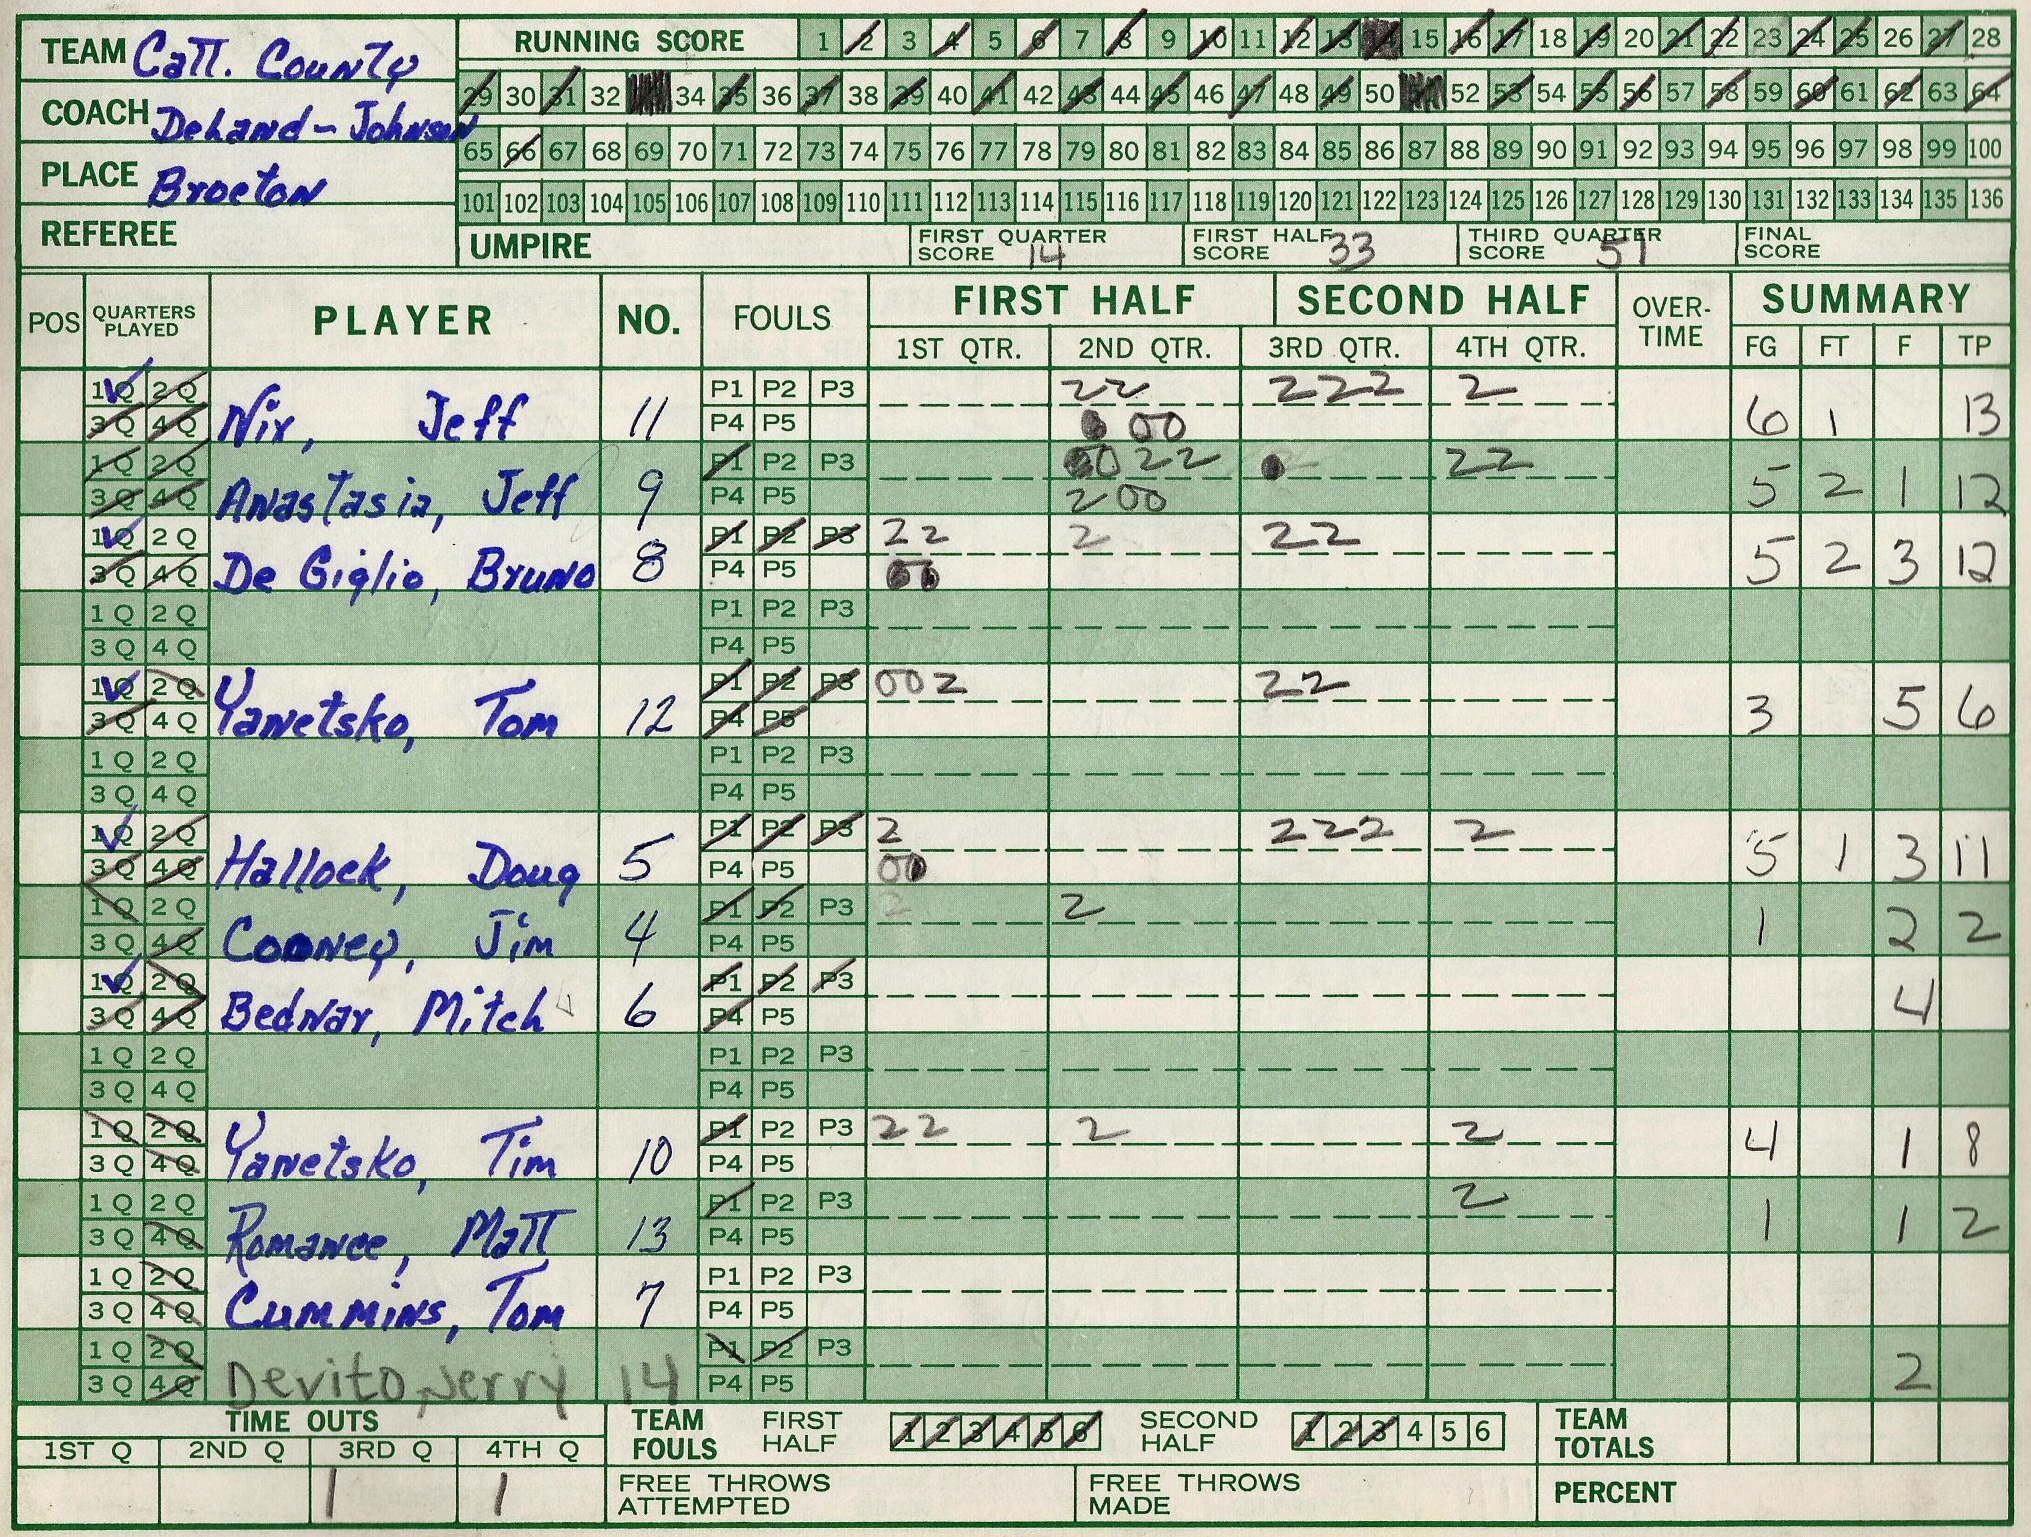 TEAM Catt. County
COACH DeLand - Johnson
PLACE Brocton
REFEREE
RUNNING SCORE 1 2 3 4 5 6 7 8 9 10 11 12 13 15 16 17 18 19 20 21 22 23 24 25 26 27 28
29 30 31 32 34 35 36 37 38 39 40 41 42 43 44 45 46 47 48 49 50 52 53 54 55 56 57 58 59 60 61 62 63 64
65 66 67 68 69 70 71 72 73 74 75 76 77 78 79 80 81 82 83 84 85 86 87 88 89 90 91 92 93 94 95 96 97 98 99 100
101 102 103 104 105 106 107 108 109 110 111 112 113 114 115 116 117 118 119 120 121 122 123 124 125 126 127 128 129 130 131 132 133 134 135 136
UMPIRE FIRST QUARTER SCORE 14 FIRST HALF SCORE 33 THIRD QUARTER SCORE 51 FINAL SCORE
POS QUARTERS PLAYED PLAYER NO. FOULS FIRST HALF SECOND HALF OVER-TIME SUMMARY
1ST QTR. 2ND QTR. 3RD QTR. 4TH QTR. FG FT F TP
1Q 2Q P1 P2 P3 22 222 2
3Q 4Q Nix, Jeff 11 P4 P5 00 6 1 13
1Q 2Q P1 P2 P3 0 22 22
3Q 4Q Anastasia, Jeff 9 P4 P5 200 5 2 1 12
1Q 2Q P1 P2 P3 22 2 22
3Q 4Q De Giglio, Bruno 8 P4 P5 00 5 2 3 12
1Q 2Q P1 P2 P3
3Q 4Q P4 P5
1Q 2Q P1 P2 P3 002 22
3Q 4Q Yanetsko, Tom 12 P4 P5 3 5 6
1Q 2Q P1 P2 P3
3Q 4Q P4 P5
1Q 2Q P1 P2 P3 2 222 2
3Q 4Q Hallock, Doug 5 P4 P5 00 5 1 3 11
1Q 2Q P1 P2 P3 2
3Q 4Q Cooney, Jim 4 P4 P5 1 2 2
1Q 2Q P1 P2 P3
3Q 4Q Bednar, Mitch 6 P4 P5 4
1Q 2Q P1 P2 P3
3Q 4Q P4 P5
1Q 2Q P1 P2 P3 22 2 2
3Q 4Q Yanetsko, Tim 10 P4 P5 4 1 8
1Q 2Q P1 P2 P3 2
3Q 4Q Romance, Matt 13 P4 P5 1 1 2
1Q 2Q P1 P2 P3
3Q 4Q Cummins, Tom 7 P4 P5
1Q 2Q P1 P2 P3
3Q 4Q Devito, Jerry 14 P4 P5 2
TIME OUTS TEAM FOULS FIRST HALF 1 2 3 4 5 6 SECOND HALF 1 2 3 4 5 6 TEAM TOTALS
1ST Q 2ND Q 3RD Q 4TH Q
1 1 FREE THROWS ATTEMPTED FREE THROWS MADE PERCENT